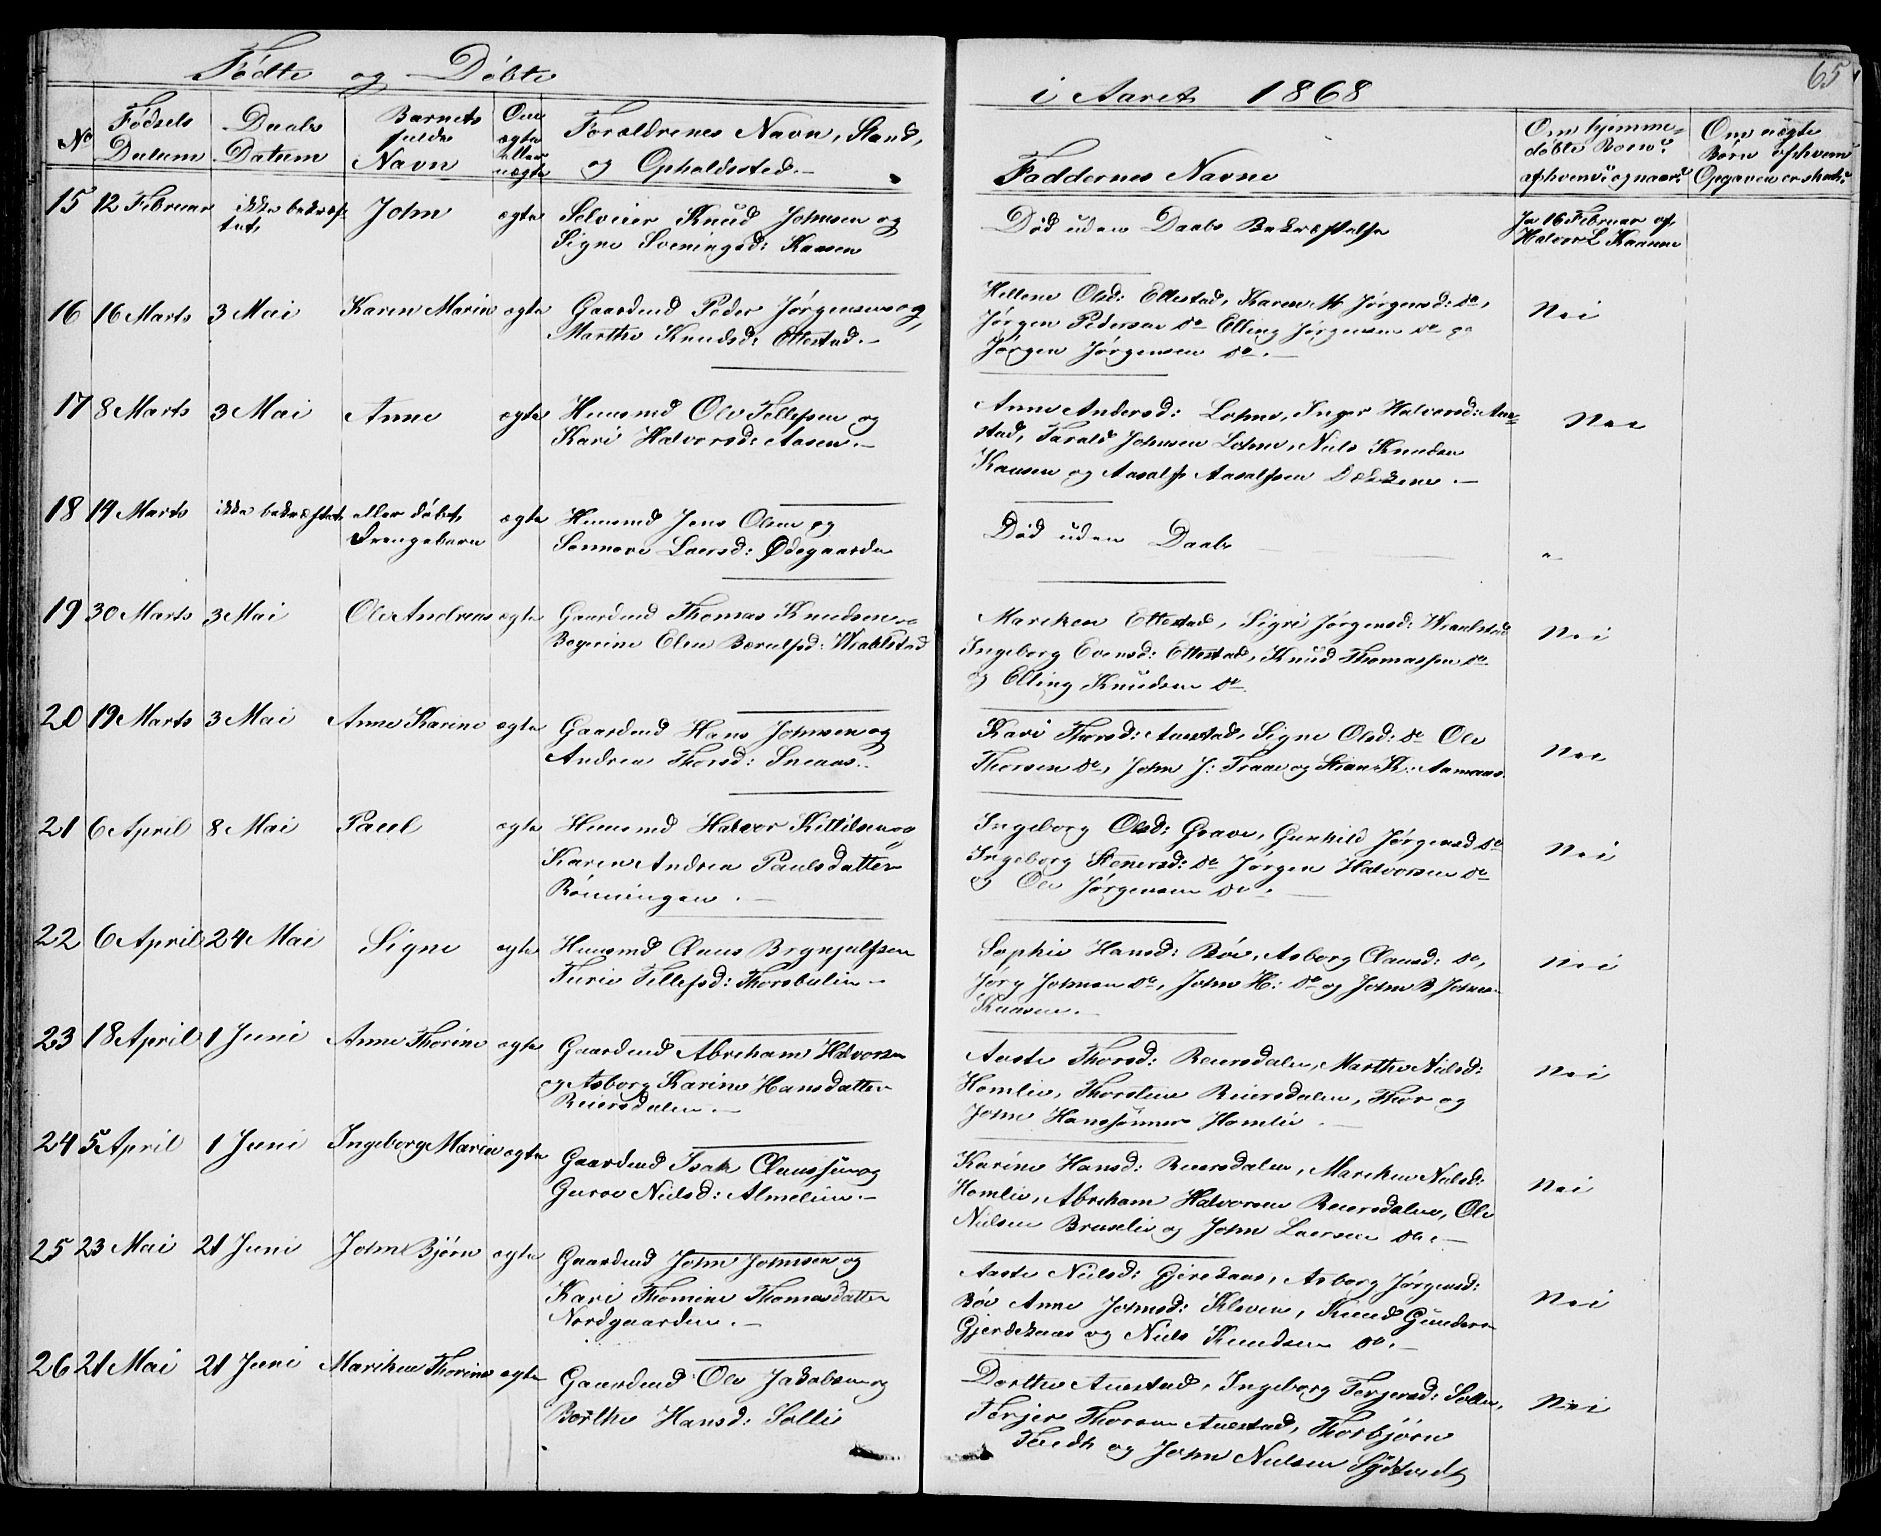 65
Fødte og Døbte i Aaret 1868
No
Fødsels Datum
Daabs Datum
Barnets fulde Navn
Om ægte eller uægte
Forældrenes Navn, Stand, og Opholdssted.
Faddernes Navne
Om hjemmedøbte Børn af hvem og naar
Om uægte Børn af hvem Opgaven er skeet
15 12 Februar ikke bekræftet John ægte Selveier Knud Johnsen og
Signe Sveningsd: Kaasen
Død uden Daabs Bekræftelse
Ja 16 Februar af
Halvor L Kaasene
16 16 Marts 3 Mai Karen Marie ægte Gaardmd Peder Jørgensen og
Marthe Knudsd: Ettestad.
Hellene Olsd: Ettestad, Karen M Jørgensd: do,
Jørgen Pedersen do Elling Jørgensen do og
Jørgen Jørgensen do.
Nei
17 8 Marts 3 Mai Anne ægte Huusmd Ole Tellefsen og
Kari Halvorsd: Aasen.
Anne Andersd: Lohne, Inger Halvorsd: Aue-
stad, Tarald Johnsen Lohne, Niels Knudsen
Kaasen og Aasolf Aasolfsen
Nei
18 14 Marts ikke bekræftet eller døbt, Drengebarn ægte Huusmd Jens Olsen og
Laersd: Ødegaarden
Død uden Daab
"
19 30 Marts 3 Mai Ole Andreas ægte Gaardmd Thomas Knudsen og
Elen Wraalstad
Mariken Ettestad, Sigri Jørgensd: Wraalstad
Ingeborg Evensd: Ettestad, Knud Thomassen do
og Elling Knudsen do
Nei
20 19 Marts 3 Mai Anne Karine ægte Gaardmd Hans Johnsen og
Andrea Thorsd: Sneaas.
Kari Thorsd: Auestad, Signe Olsd: do Ole
Thorsen do, John J: Traae og Stian K: Aamaas
Nei
21 6 April 8 Mai Paul ægte Huusmd Halvor Kittilsen og
Karen Andrea Paulsdatter
Rønningen.
Ingeborg Olsd: Grave, Gunhild Jørgensd do
Ingeborg Stenersd: do Jørgen Halvorsen do
og Ole Jørgensen do.
Nei
22 6 April 24 Mai Signe ægte Huusmd Claus Brynjulfsen
Turie Tellefsd: Thorsbulien
Sophie Hansd: Bøe, Asborg Clausd: do,
Jørg Johnsen do, John H: do og John B Johnsen
Kaasen.
Nei
23 18 April 1 Juni Anne Thorine ægte Gaardmd Abreham Halvorsen
og Asborg Karine Hansdatter
Reiersdalen.
Aaste Thorsd: Reiersdalen, Marthe Nielsd:
Homlie, Thorsten Reiersdalen, Thor og
John Hanssønner Homlie.
Nei
24 5 April 1 Juni Ingeborg Marie ægte Gaardmd Isak Claussen og
Guroe Nielsd: Almelien.
Karine Hansd: Reiersdalen, Mariken Nielsd:
Homlie, Abreham Halvorsen Reiersdalen, Ole
Nielsen Bruselie og John Laersen do.
Nei
25 23 Mai 21 Juni John Bjørn ægte Gaardmd John Johnsen og
Kari Thomine Thomasdatter
Nordgaarden.
Aaste Nielsd: Asborg Jørgensd:
Bøe Anne Johnsd: Kleven, Knud Gunders
og Niels Knudsen do.
Nei
26 21 Mai 21 Juni Mariken Thorine ægte Gaardmd Ole Jakobsen og
Børthe Hansd: Sollie
Dorthe Auestad, Ingeborg Terjersd: Sollie,
Terjer Thorsen Auestad, Thorbjørn
Tvedt og John Nielsen Sydtvedt
Nei